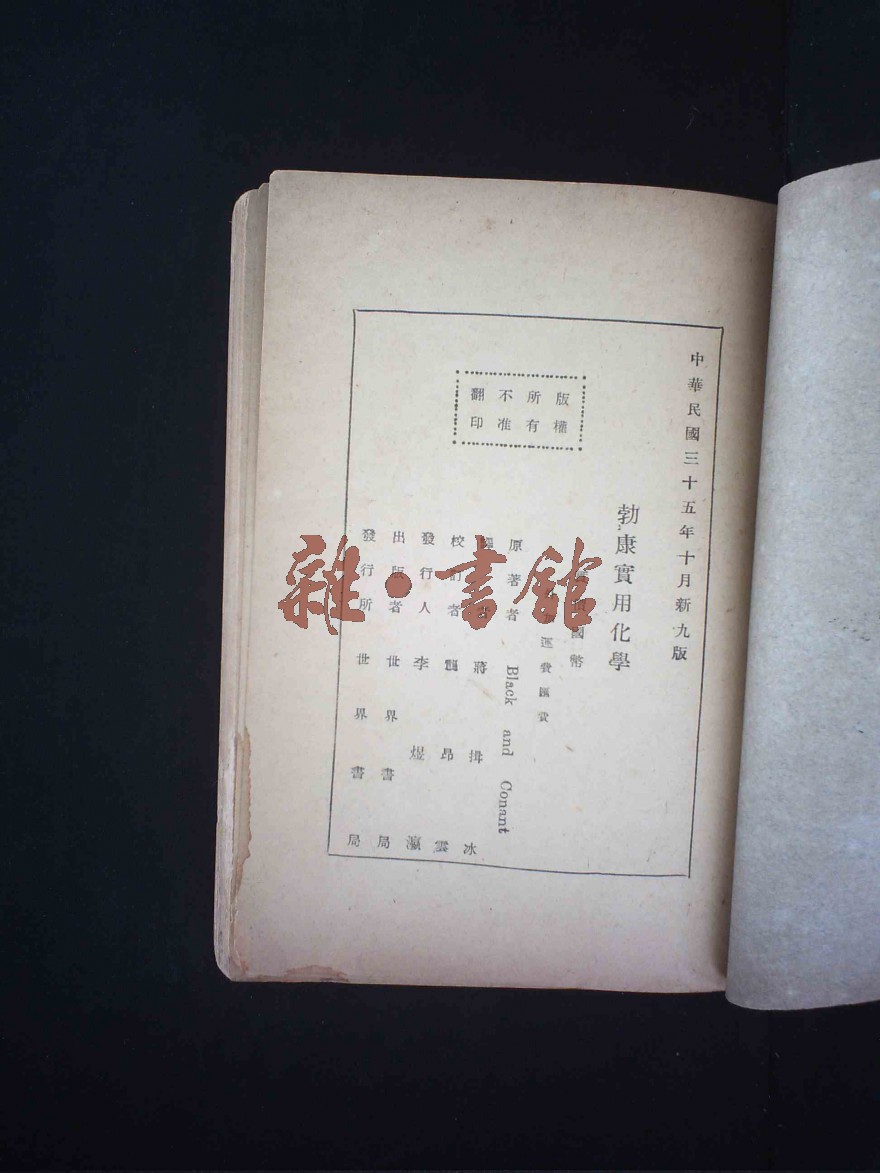 中華民國三十五年十月新九版
勃康實用化學
國幣
運費匯費
原著者 Black and Conant
者 蔣揖冰
校訂者 龔昂雲
發行人 李煜瀛
出版者 世界書局
發行所 世界書局
版權
所有
不准
翻印
雜·書館